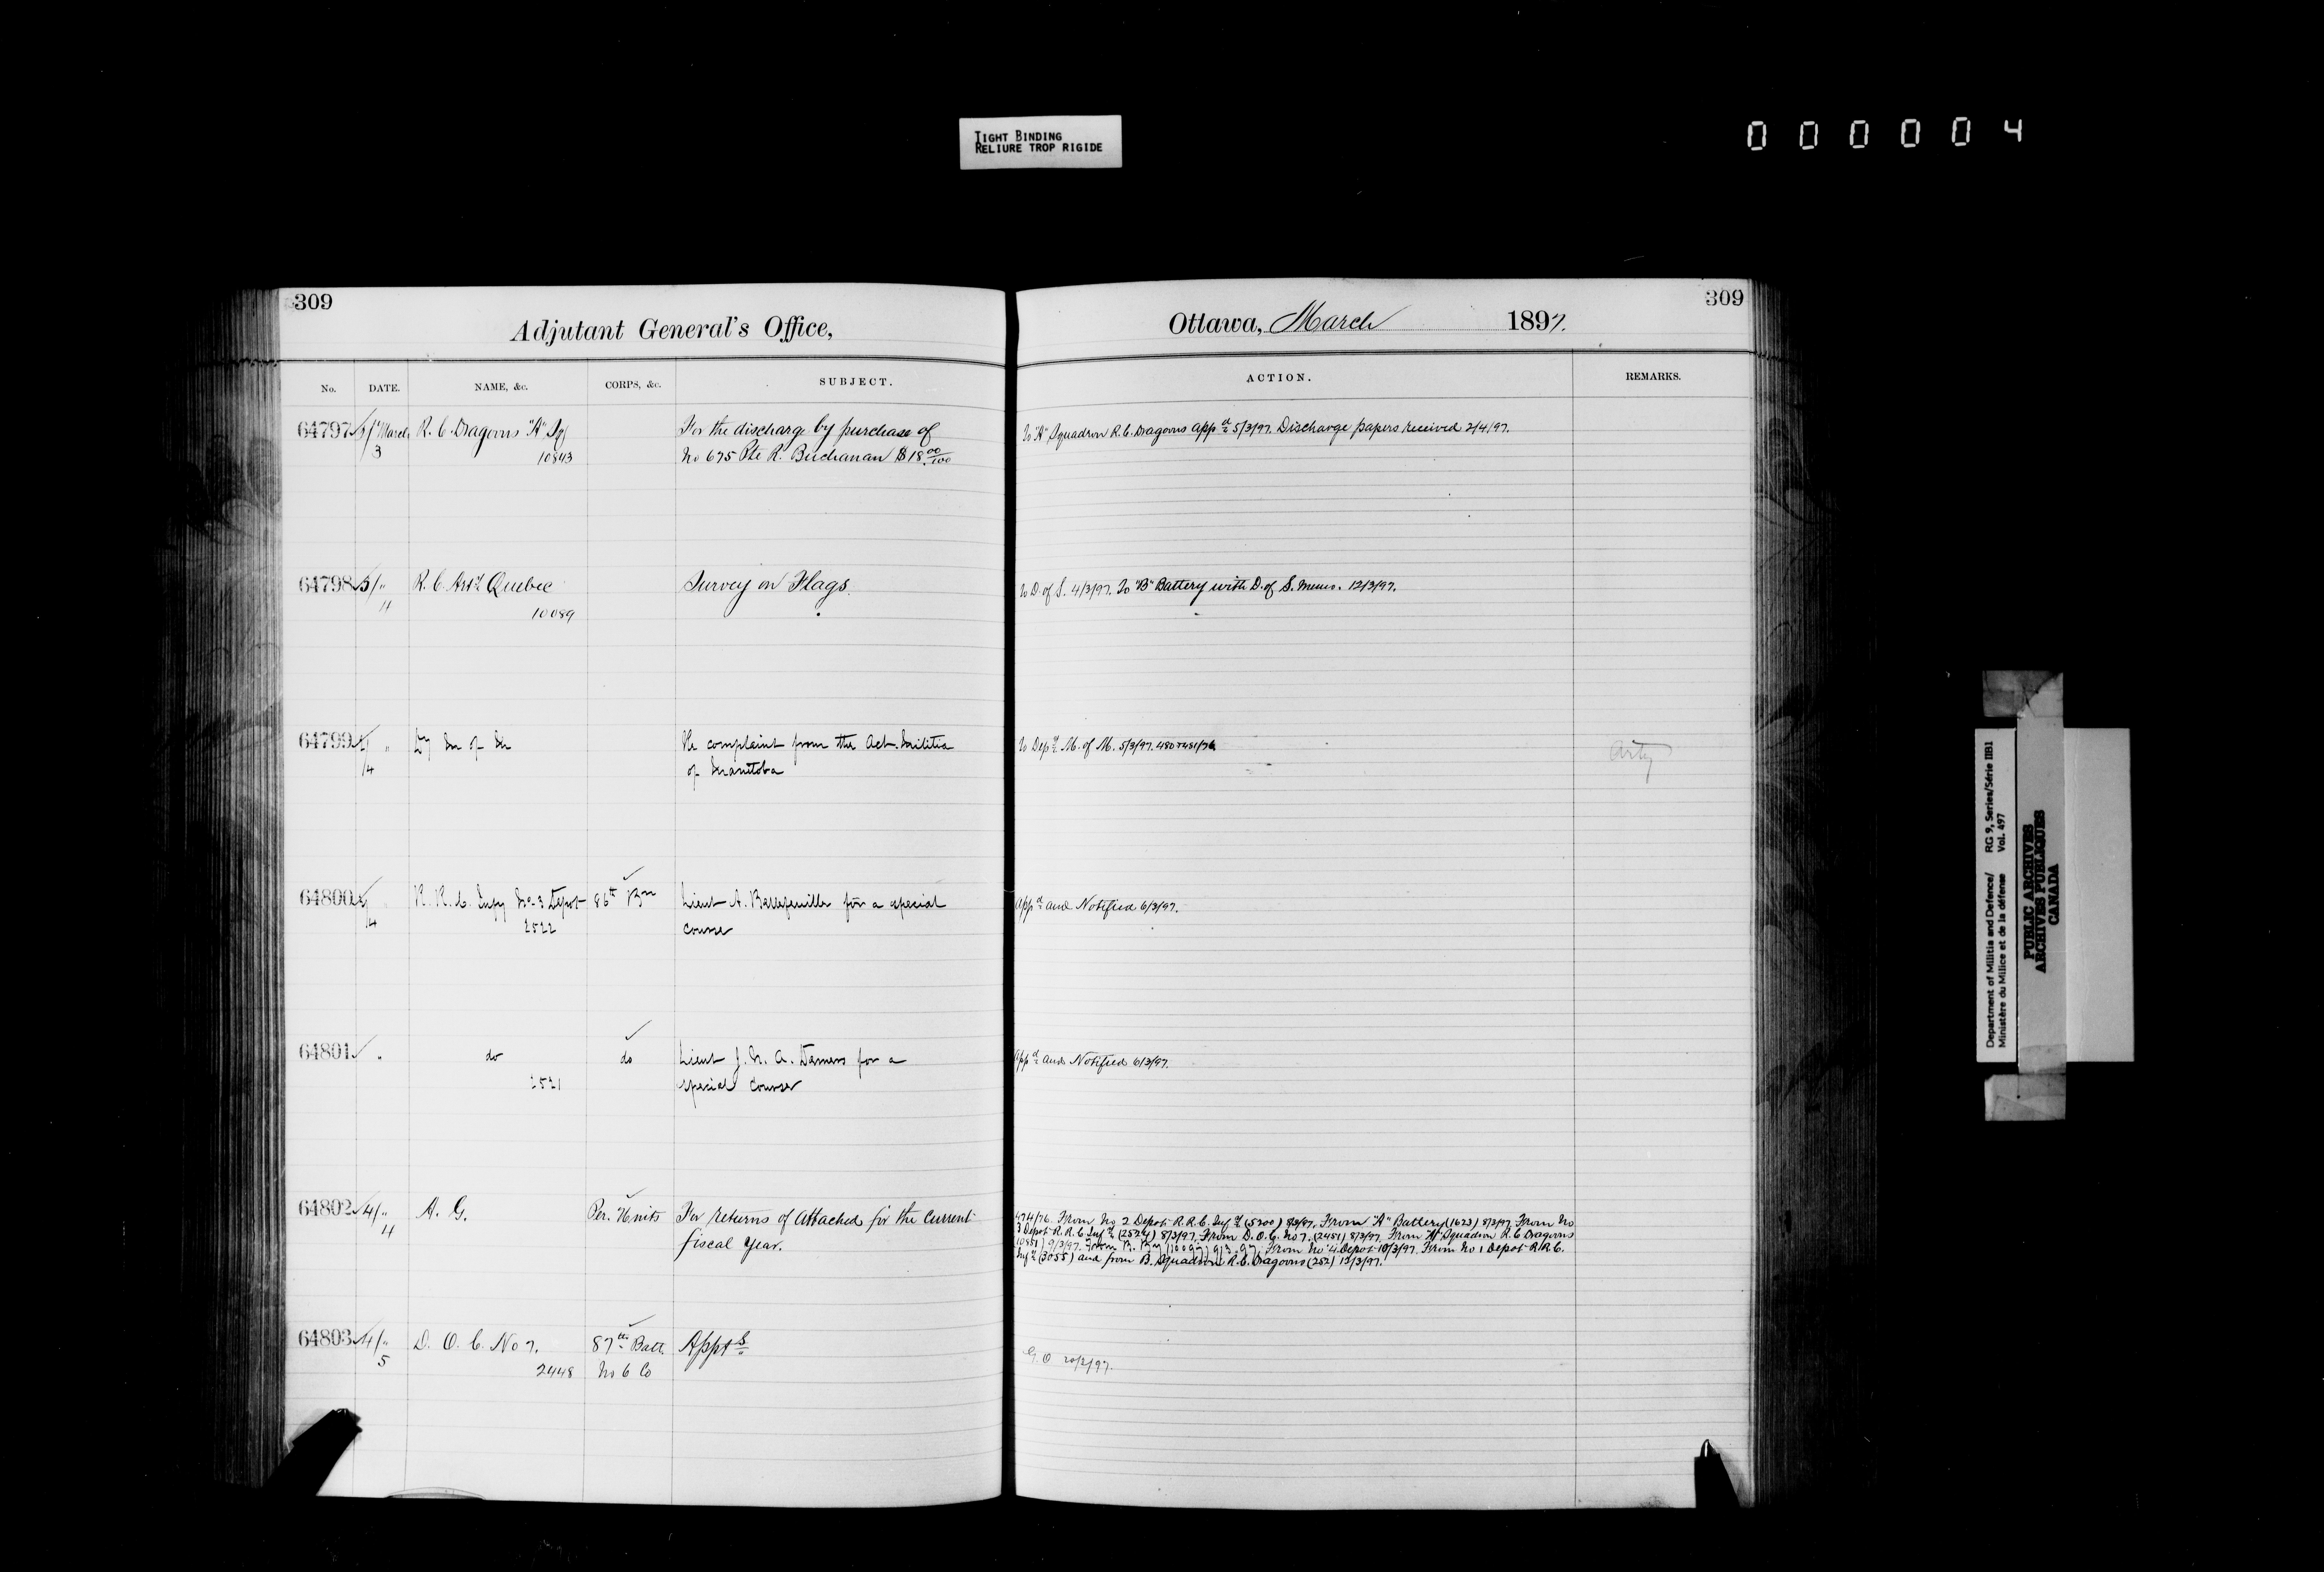 TIGHT BINDING
RELIURE TROP RIGIDE
000004
309
Adjutant General's Office,
No. DATE. NAME, &c. CORPS, &c. SUBJECT.
64797 March R. C. Dragoons "A" Sq For the discharge by purchase of
3 10843 No 675 Pte R. Buchanan $18 00/100
64798 3/" R. C. Arty Quebec Survey on Flags.
4 10089
64799 " Dy M of M Re complaint from the Act. Militia
/4 of Manitoba
64800 R. R. C. Infy No. 3 Depot 86th Bn Lieut A. for a special
/4 2522 course
64801 " do do Lieut J. N. A. Demers for a
2521 special course
64802 4/" A. G. Per. Units For returns of Attached for the current
4 fiscal year.
64803 4/" D. O. C. No 7. 87th Batt. Appts
5 2448 No 6 Co
309
Ottawa, March 1897.
ACTION. REMARKS.
To "A" Squadron R.C. Dragoons appd 5/3/97. Discharge papers received 2/4/97.
To D. of S. 4/3/97. To "B" Battery with D. of S. Memo. 12/3/97.
To Depy M. of M. 5/3/97. Arty
Appd and Notified 6/3/97.
Appd and Notified 6/3/97.
474/76. From No 2 Depot R.R.C. Infy (5200) 8/3/97. From "A" Battery (1623) 8/3/97. From No
3 Depot R.R.C. Infy (2524) 8/3/97. From D.O.C. No 7. (2451) 8/3/97. From "A" Squadron R.C Dragoons
(10851) 9/3/97. From From No 4 Depot 10/3/97. From No 1 Depot R.R.C.
Infy (3055) and from B. Squadron R.C. Dragoons (252) 13/3/97.
G. O 20/2/97.
Department of Militia and Defence/ RG 9, Series/Série IIB1
Ministère du Milice et de la défense Vol. 497
PUBLIC ARCHIVES
ARCHIVES PUBLIQUES
CANADA